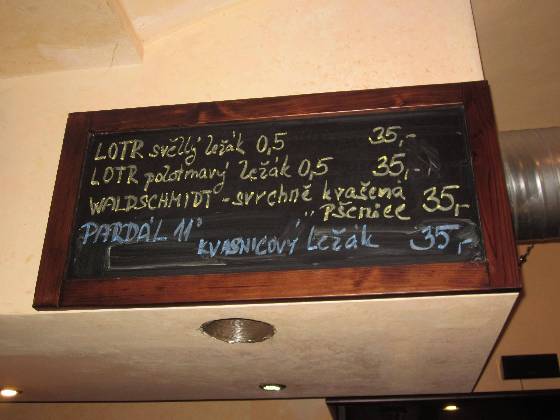 LOTR světlý ležák 0,5 35,-
LOTR polotmavý ležák 0,5 35,-
WALDSCHMIDT - svrchně kvašená 35,-
" Pšenice
PARDÁL 11°
KVASNICOVÝ Ležák 35,-